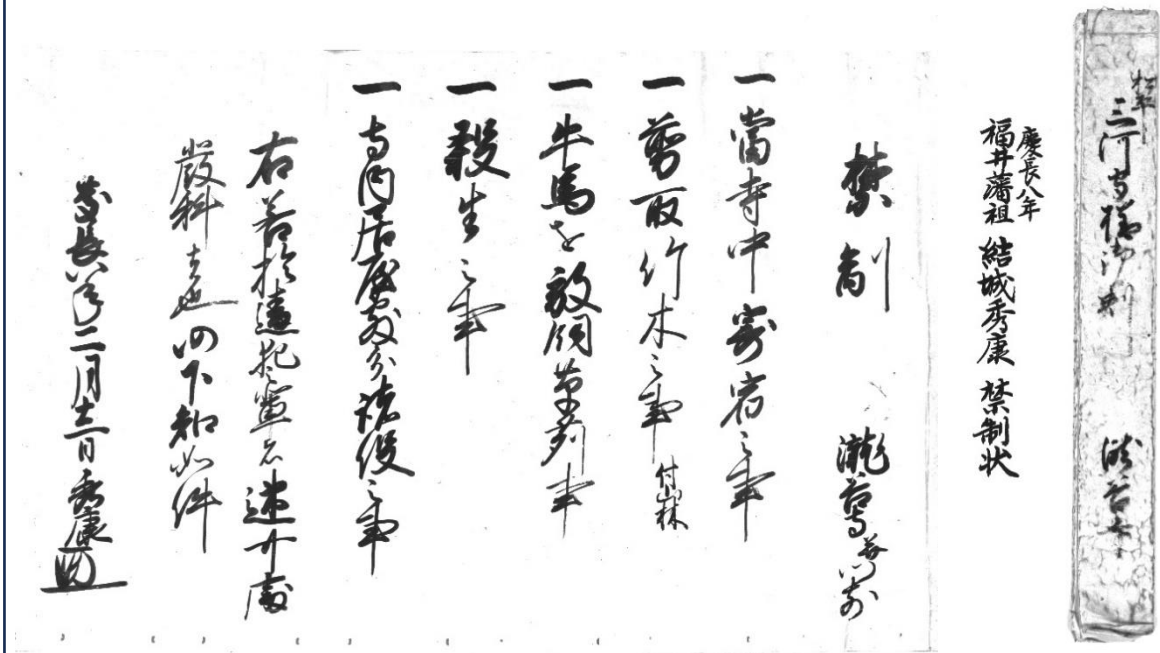 三河守様御判
瀧谷寺
慶長八年
福井藩祖 結城秀康 禁制状
禁制 瀧谷寺
一當寺中寄宿之事
一剪取竹木之事 付山林
一牛馬を放飼草刈事
一殺生之事
一寺内居屋敷分諸役之事
右若於違犯輩者速可處
嚴科者也仍下知如件
慶長八年二月十二日 秀康